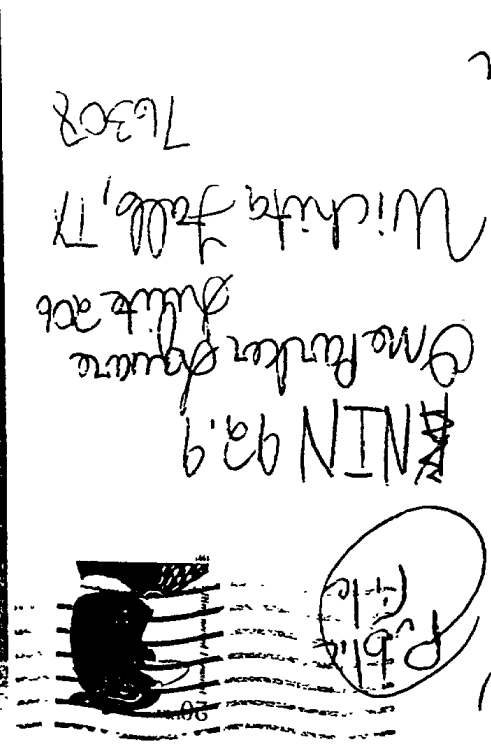 Public
File
KNIN 92.9
One Parker Square
Suite 206
Wichita Falls, TX
76308